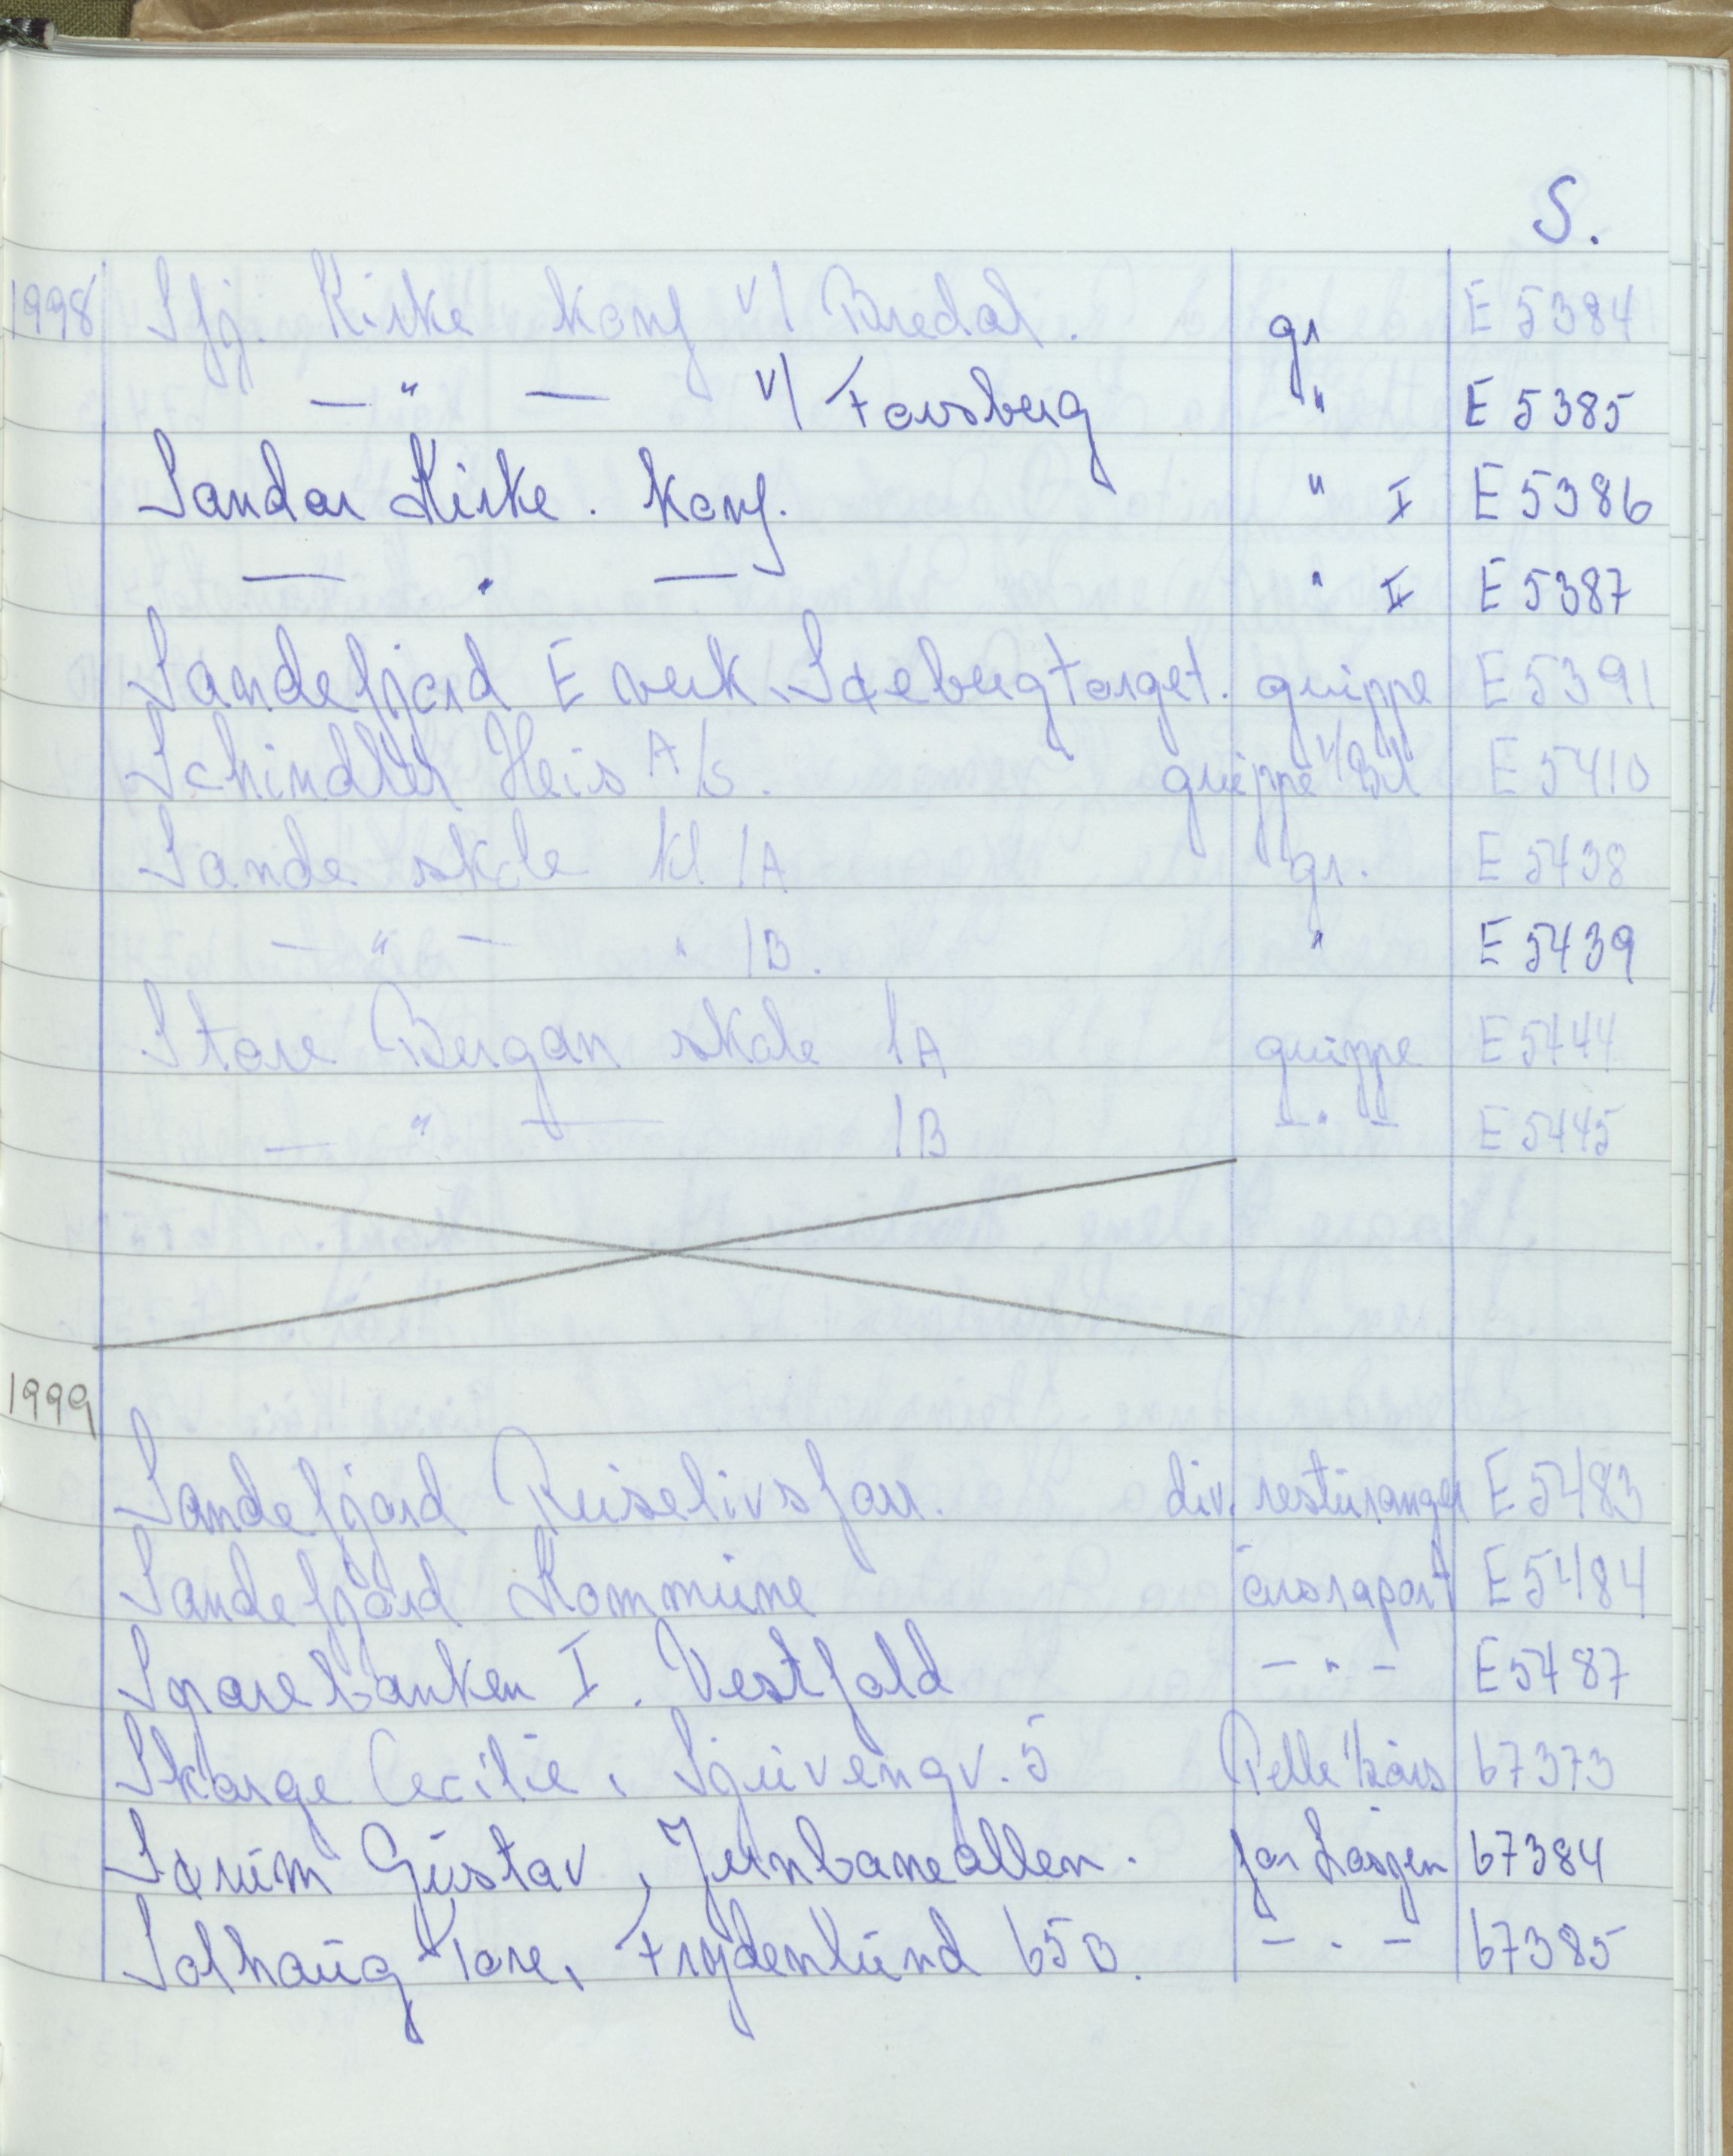 S.
1998 Sfj. Kirke konf v/ Bredal. gr E 5384
— " — v/ Forsberg " E 5385
Sandar Kirke. konf. " I E 5386
— " — " II E 5387
Sandefjord E verk, Sæbergtorget. gruppe E 5391
Schindler Heis A/S. gruppe v/Bil E 5410
Sande skole kl 1A gr. E 5438
— " — " 1B. " E 5439
Store Bergan skole 1A gruppe E 5444
— " — 1B — " — E 5445
1999
Sandefjord Reiselivsfor. div. resturanger E 5483
Sandefjord Kommune årsraport E 5484
Sparebanken I. Vestfold — " — E 5487
Skorge Cecilie, Sjuvengv. 5 67373
Sørum Gustav, Jernbanealleen. 67384
Solhaug Tore, Frydenlund 65B. — " — 67385